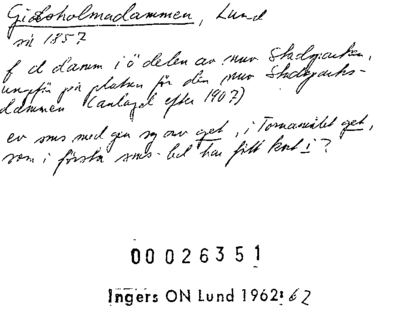 Gidsholmadammen, Lund
sit 1857
f d damm i ö delen av nuv Stadsparken,
ungefär på platsen för den nuv Stadsparks-
dammen (anlagd efter 1907)
ev sms med gen sg av get, i Tornamålet get,
som i första sms-led har fått kort i?
00026351
Ingers ON Lund 1962:62